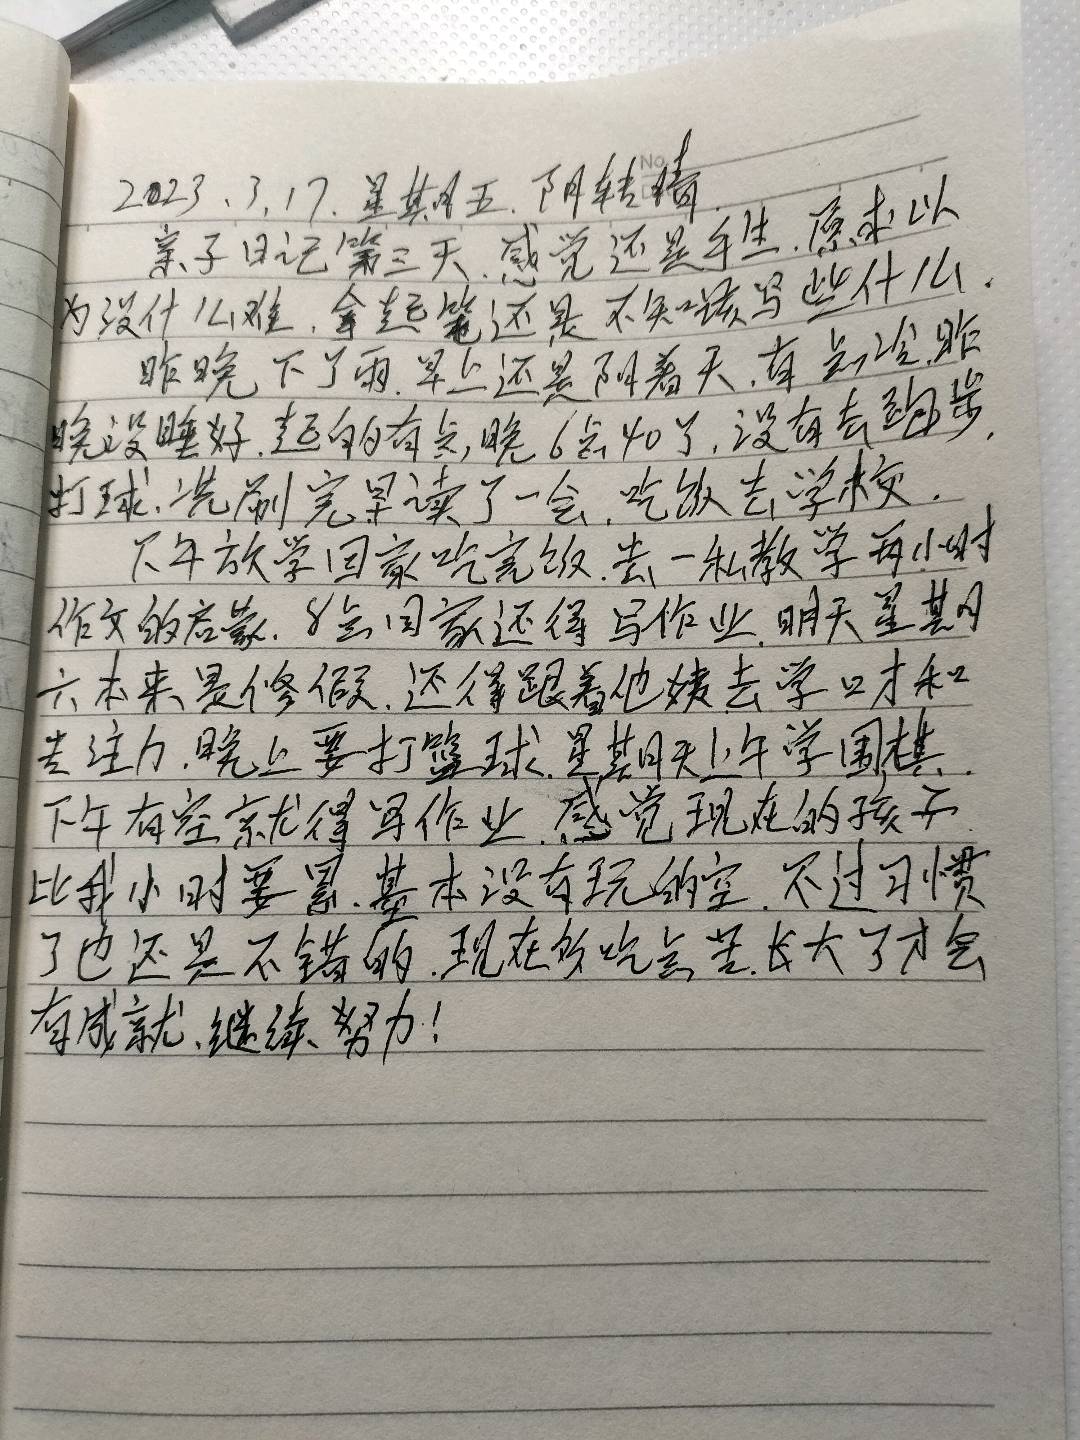 No
2023.3.17.星期五.阴转晴.
亲子日记第三天.感觉还是手生.原来以
为没什么难.拿起笔还是不知该写些什么.
昨晚下了雨.早上还是阴着天.有点冷.昨
晚没睡好.起的有点晚6点40了.没有去跑步.
打球.洗刷完早读了一会.吃饭去学校.
下午放学回家吃完饭.去一私教学两小时
作文的启蒙.8点回家还得写作业.明天星期
六本来是休假.还得跟着他姨去学口才和
专注力.晚上要打篮球.星期天上午学围棋.
下午有空就得写作业.感觉现在的孩子.
比我小时要累.基本没有玩的空.不过习惯
了也还是不错的.现在多吃点苦.长大了才会
有成就.继续努力!